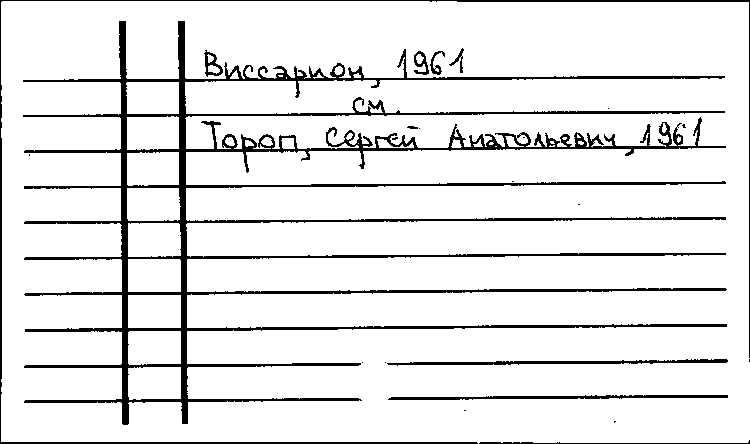 Виссарион, 1961
см.
Тороп, Сергей Анатольевич, 1961